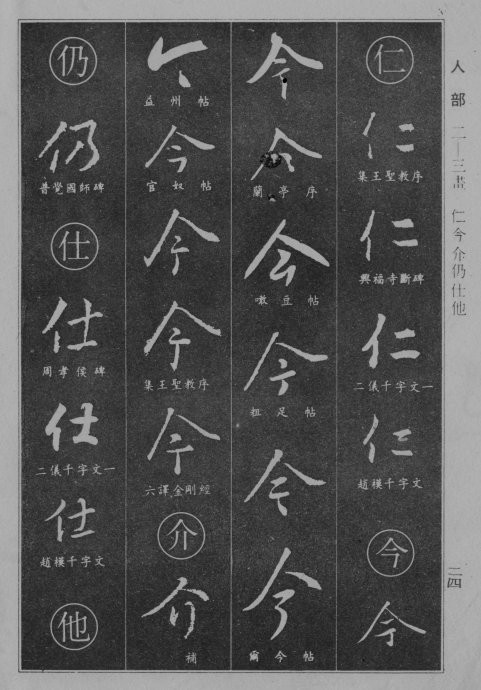 人部 二—三畫 仁今介仍仕他
二四
仁
仁
集王聖教序
仁
興福寺斷碑
仁
二儀千字文一
仁
趙模千字文
今
今
今
今
蘭亭序
今
噉豆帖
今
粗足帖
今
今
爾今帖
今
益州帖
今
官奴帖
今
今
集王聖教序
今
六譯金剛經
介
介
補
仍
仍
普覺國師碑
仕
仕
周孝侯碑
仕
二儀千字文一
仕
趙模千字文
他